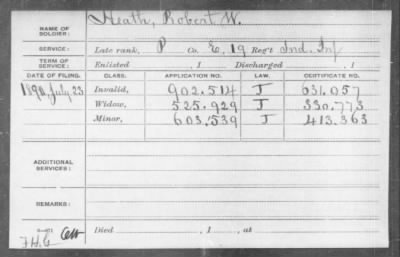 NAME OF SOLDIER: Heath, Robert W.
SERVICE: Late rank, P Co. E, 19 Reg't Ind. Inf
TERM OF SERVICE: Enlisted , 1 Discharged , 1
DATE OF FILING. CLASS. APPLICATION NO. LAW. CERTIFICATE NO.
1890, July 23 Invalid, 902.514 J 631.057
Widow, 525.929 J 330.773
Minor, 603.539 J 413.363
ADDITIONAL SERVICES:
REMARKS:
Died , 1 , at